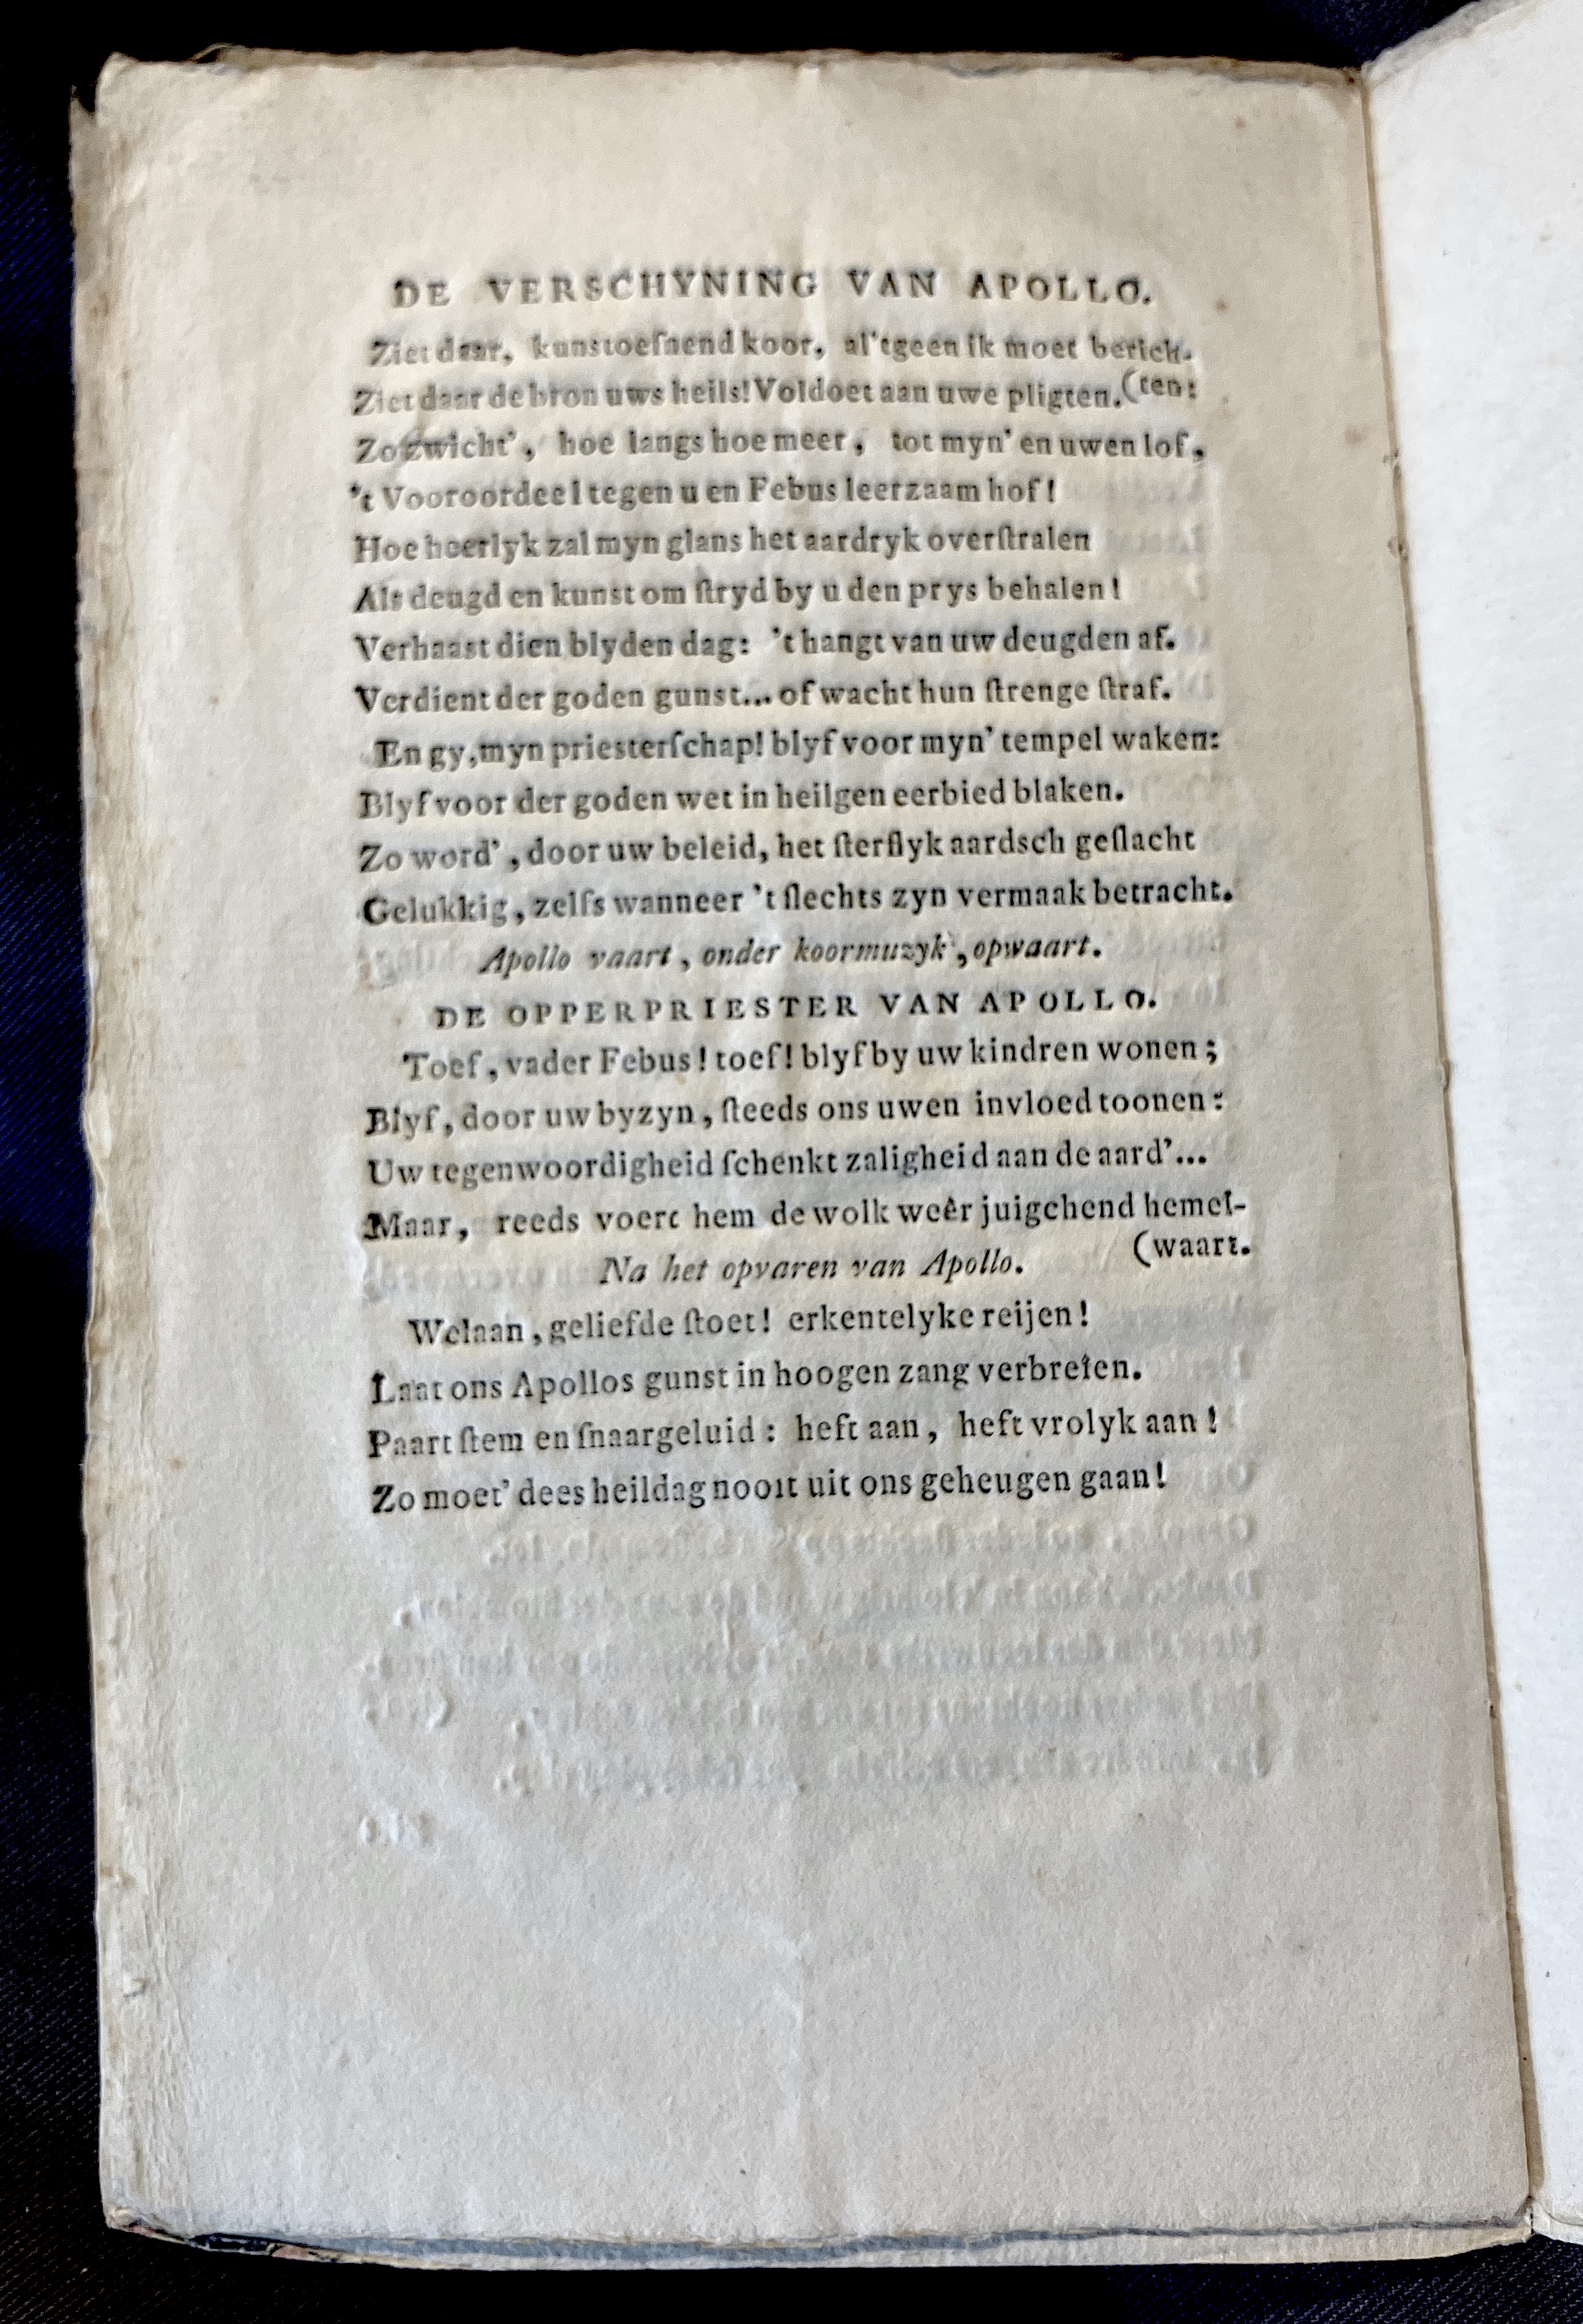 DE VERSCHYNING VAN APOLLO.
Ziet daar, kunstoefnend koor, al 'tgeen ik moet berich-
Ziet daar de bron uws heils! Voldoet aan uwe pligten. (ten:
Zo zwicht', hoe langs hoe meer, tot myn' en uwen lof,
't Vooroordeel tegen u en Febus leerzaam hof!
Hoe heerlyk zal myn glans het aardryk overſtralen
Als deugd en kunst om ſtryd by u den prys behalen!
Verhaast dien blyden dag: 't hangt van uw deugden af.
Verdient der goden gunst... of wacht hun ſtrenge ſtraf.
En gy, myn priesterſchap! blyf voor myn' tempel waken:
Blyf voor der goden wet in heilgen eerbied blaken.
Zo word', door uw beleid, het ſterflyk aardsch geſlacht
Gelukkig, zelfs wanneer 't ſlechts zyn vermaak betracht.
Apollo vaart, onder koormuzyk, opwaart.
DE OPPERPRIESTER VAN APOLLO.
Toef, vader Febus! toef! blyf by uw kindren wonen;
Blyf, door uw byzyn, ſteeds ons uwen invloed toonen:
Uw tegenwoordigheid ſchenkt zaligheid aan de aard'...
Maar, reeds voert hem de wolk weêr juigchend hemel-
(waart.
Na het opvaren van Apollo.
Welaan, geliefde ſtoet! erkentelyke reijen!
Laat ons Apollos gunst in hoogen zang verbreîen.
Paart ſtem en ſnaargeluid: heft aan, heft vrolyk aan!
Zo moet' dees heildag nooit uit ons geheugen gaan!